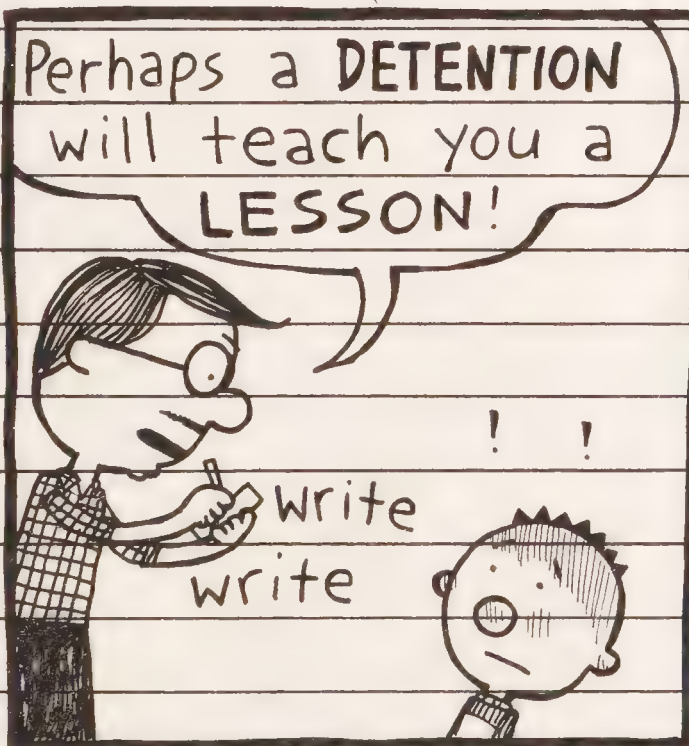 Perhaps a DETENTION
will teach you a
LESSON!
! !
write
write